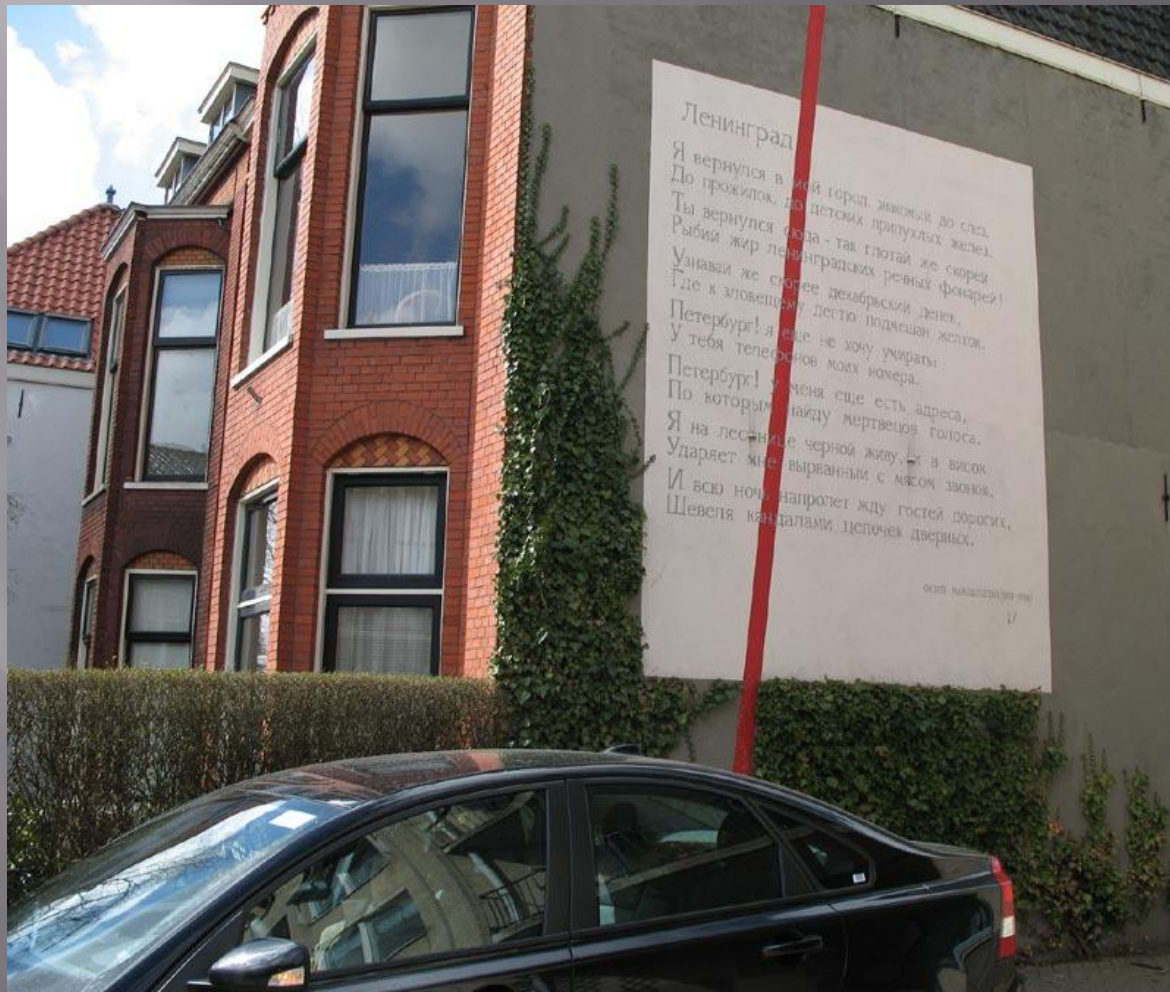 Ленинград
Я вернулся в мой город, знакомый до слез,
До прожилок, до детских припухлых желез.
Ты вернулся сюда - так глотай же скорей
Рыбий жир ленинградских речных фонарей!
Узнавай же скорее декабрьский денек,
Где к зловещему дегтю подмешан желток.
Петербург! я еще не хочу умирать:
У тебя телефонов моих номера.
Петербург! У меня еще есть адреса,
По которым найду мертвецов голоса.
Я на лестнице черной живу, и в висок
Ударяет мне вырванный с мясом звонок,
И всю ночь напролет жду гостей дорогих,
Шевеля кандалами цепочек дверных.
осип